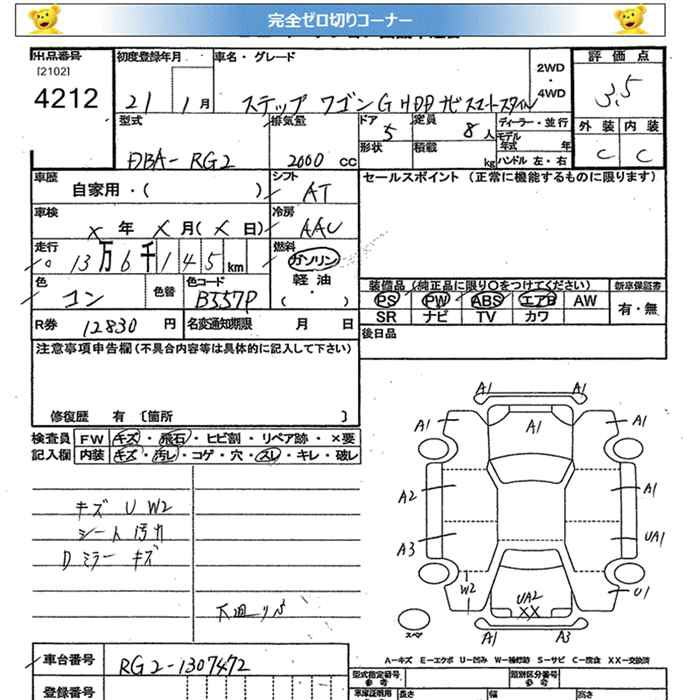 完全ゼロ切りコーナー
出品番号 初度登録年月 車名・グレード 評価点
[2102]
4212
21 1月 ステップ ワゴン G HDD ナビ スマートスタイル 2WD・4WD 3.5
型式 排気量 ドア 5 定員 8人 ディーラー・並行 外装 内装
モデル年式 年
DBA-RG2 2000 cc 形状 積載 kg ハンドル 左・右 C C
車歴 シフト セールスポイント (正常に機能するものに限ります)
自家用・( ) AT
車検 冷房
× 年 × 月(× 日) AAC
走行 燃料
13万6千145km ガソリン
軽油・( )
色 色替 色コード 装備品(純正品に限り○をつけてください) 新車保証書
コン B557P PS PW ABS エアB AW 有・無
SR ナビ TV カワ
R券 12830 円 名変通知期限 月 日 後日品
注意事項申告欄(不具合内容等は具体的に記入して下さい)
修復歴 有 〔箇所 〕
検査員 FW キズ・飛石・ヒビ割・リペア跡・×要
記入欄 内装 キズ・汚レ・コゲ・穴・スレ・キレ・破レ
キズ U W2
シート汚れ
Dミラー キズ
下廻りS
A1 A1
A1 A1 A1
A2 A1
A3 UA1
W2 UA2 U1
XX
スペア A1 A3
A-キズ E-エクボ U-凹み W-補修跡 S-サビ C-腐食 XX-交換済
車台番号 RG2-1307472 型式指定番号 参考 類別区分番号 参考
登録番号 車庫証明用 参考 長さ 幅 高さ